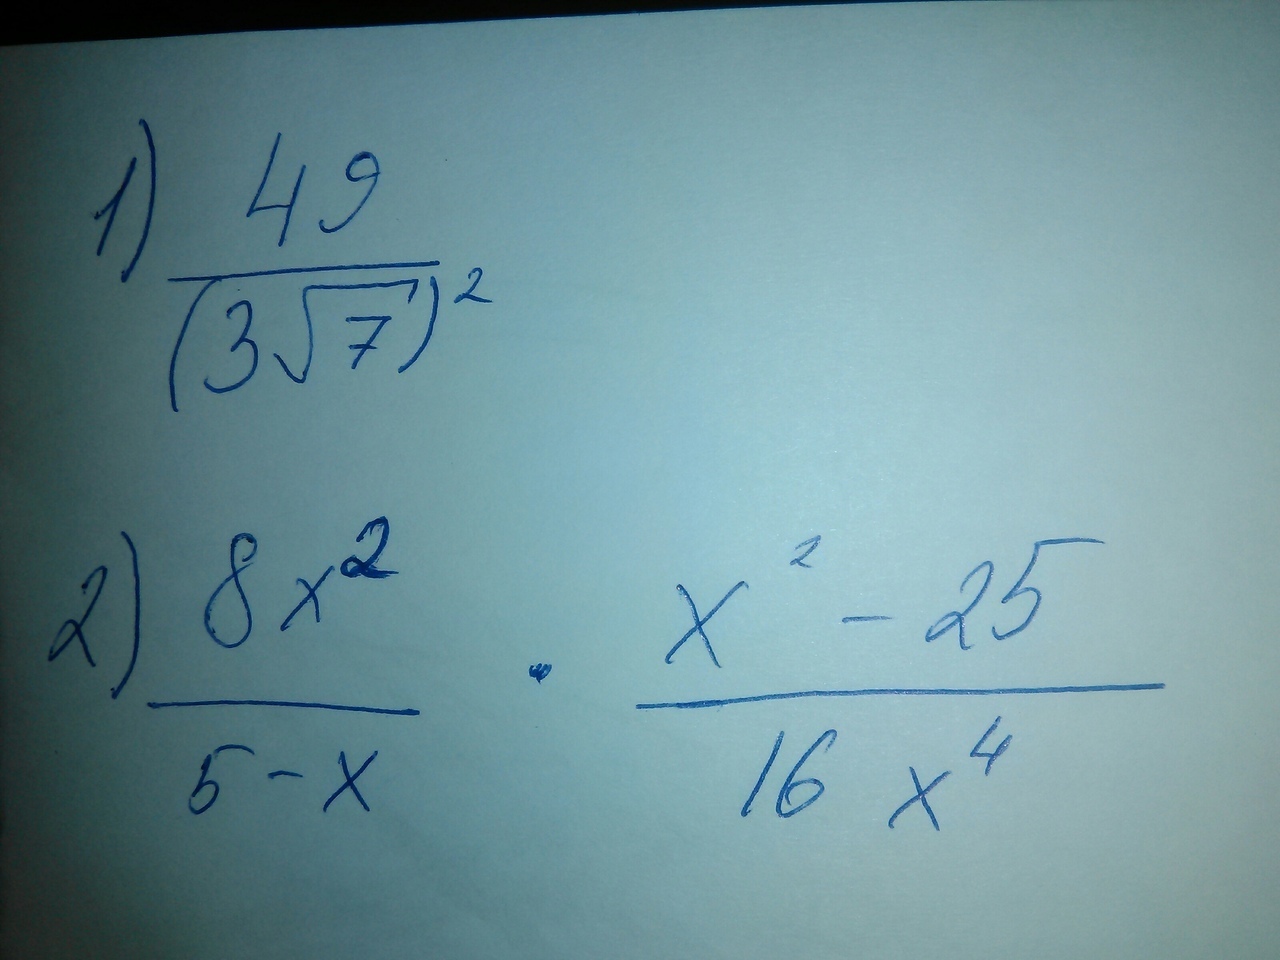 1) 49
(3√7)²
2) 8x² · x² - 25
5 - x 16 x⁴